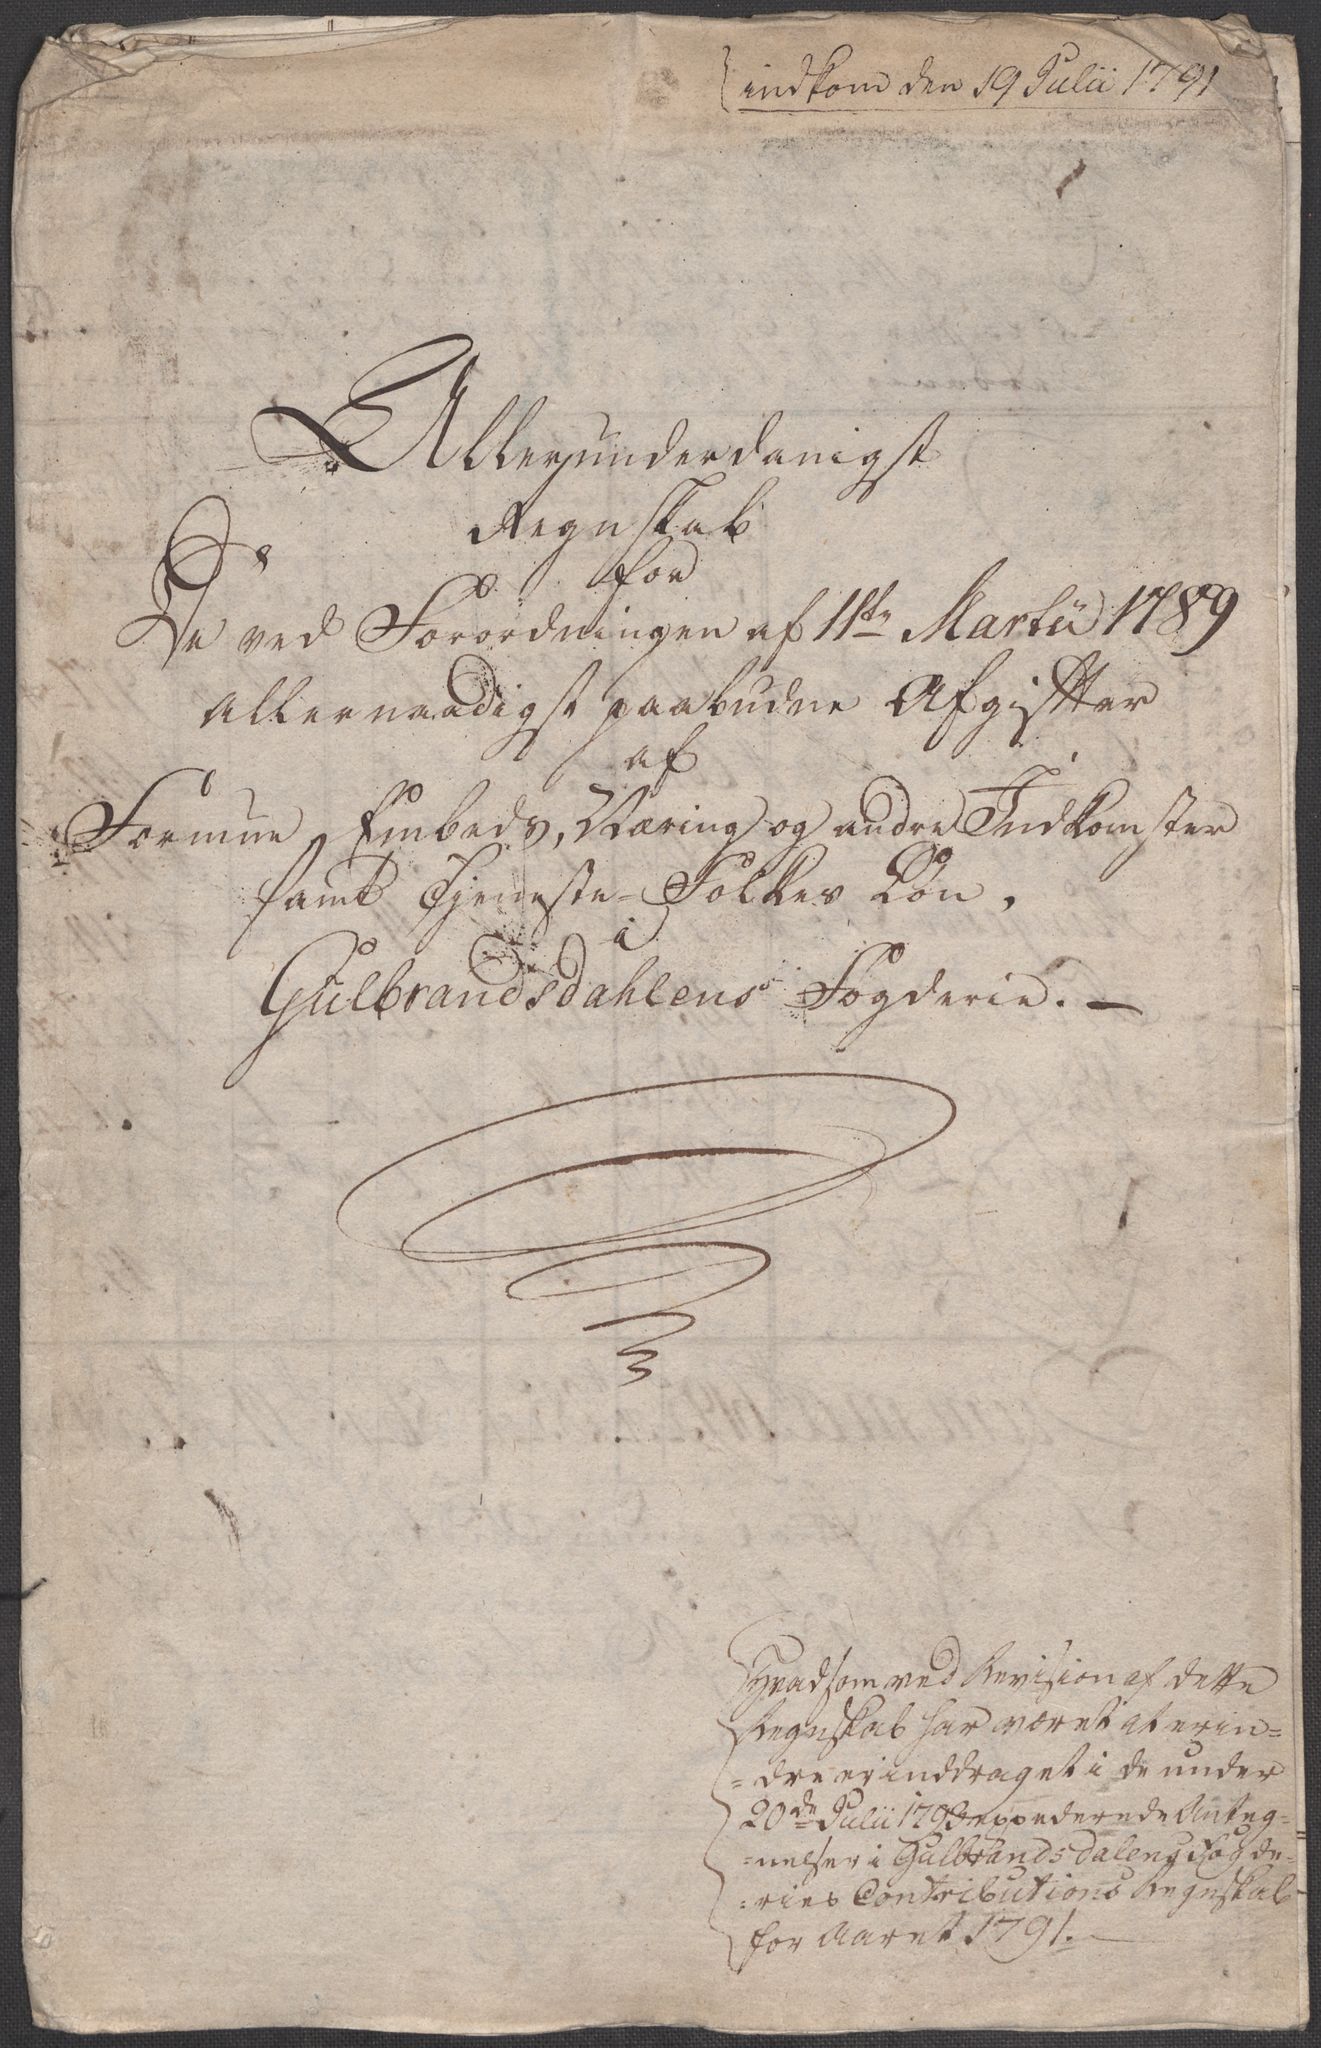 indkom den 19 Julii 1791
Allerunderdanigst
Regnskab
for
De ved Forordningen af 11te Martii 1789
allernaadigst paabudne Afgifter
af
Formue, Embeds, Næring og andre Indkomster
samt Tjeneste-Folkes Løn,
i
Gulbrandsdahlens Fogderie. —
Hvad som ved Revision af dette
Regnskab har været at erin=
=dre er inddraget i de under
20de Julii 1793 expederede Anteg=
=nelser i Gulbrandsdalens Fogde=
=ries Contributions Regnskab
for Aaret 1791. —